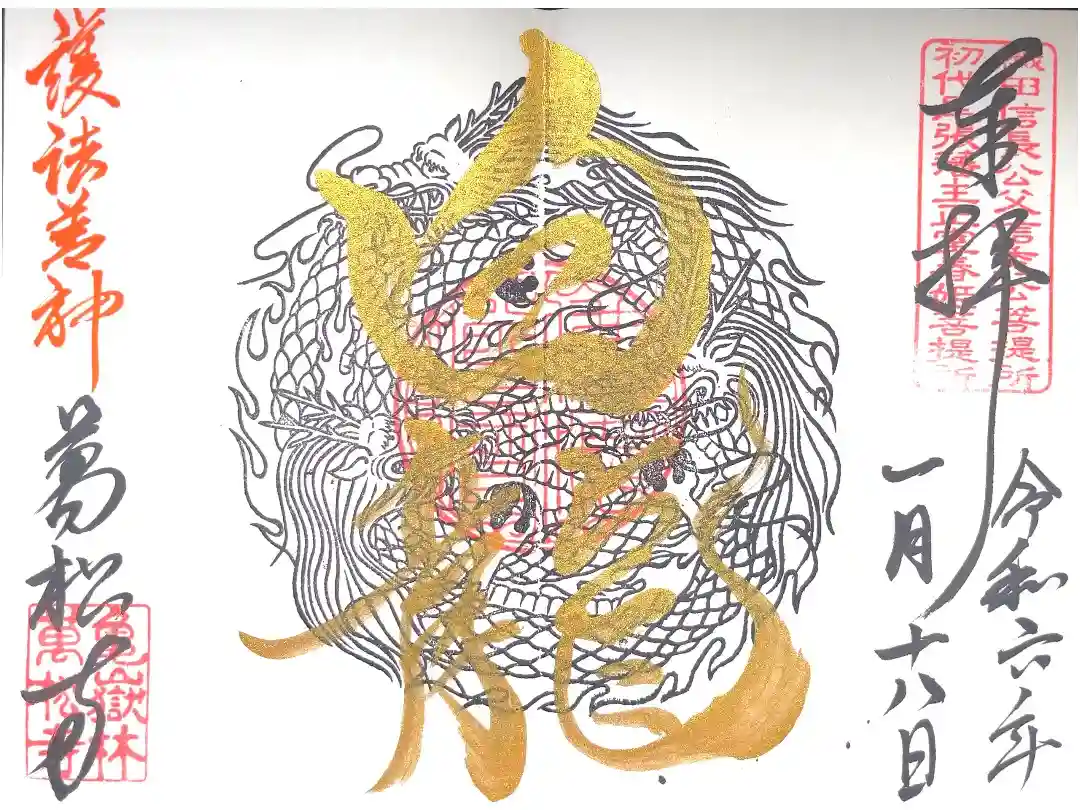 奉拝
織田信長公父信秀公菩提所
初代尾張藩主正室春姫菩提所
令和六年
一月十八日
白龍
護法善神
萬松寺
龜嶽林
萬松寺